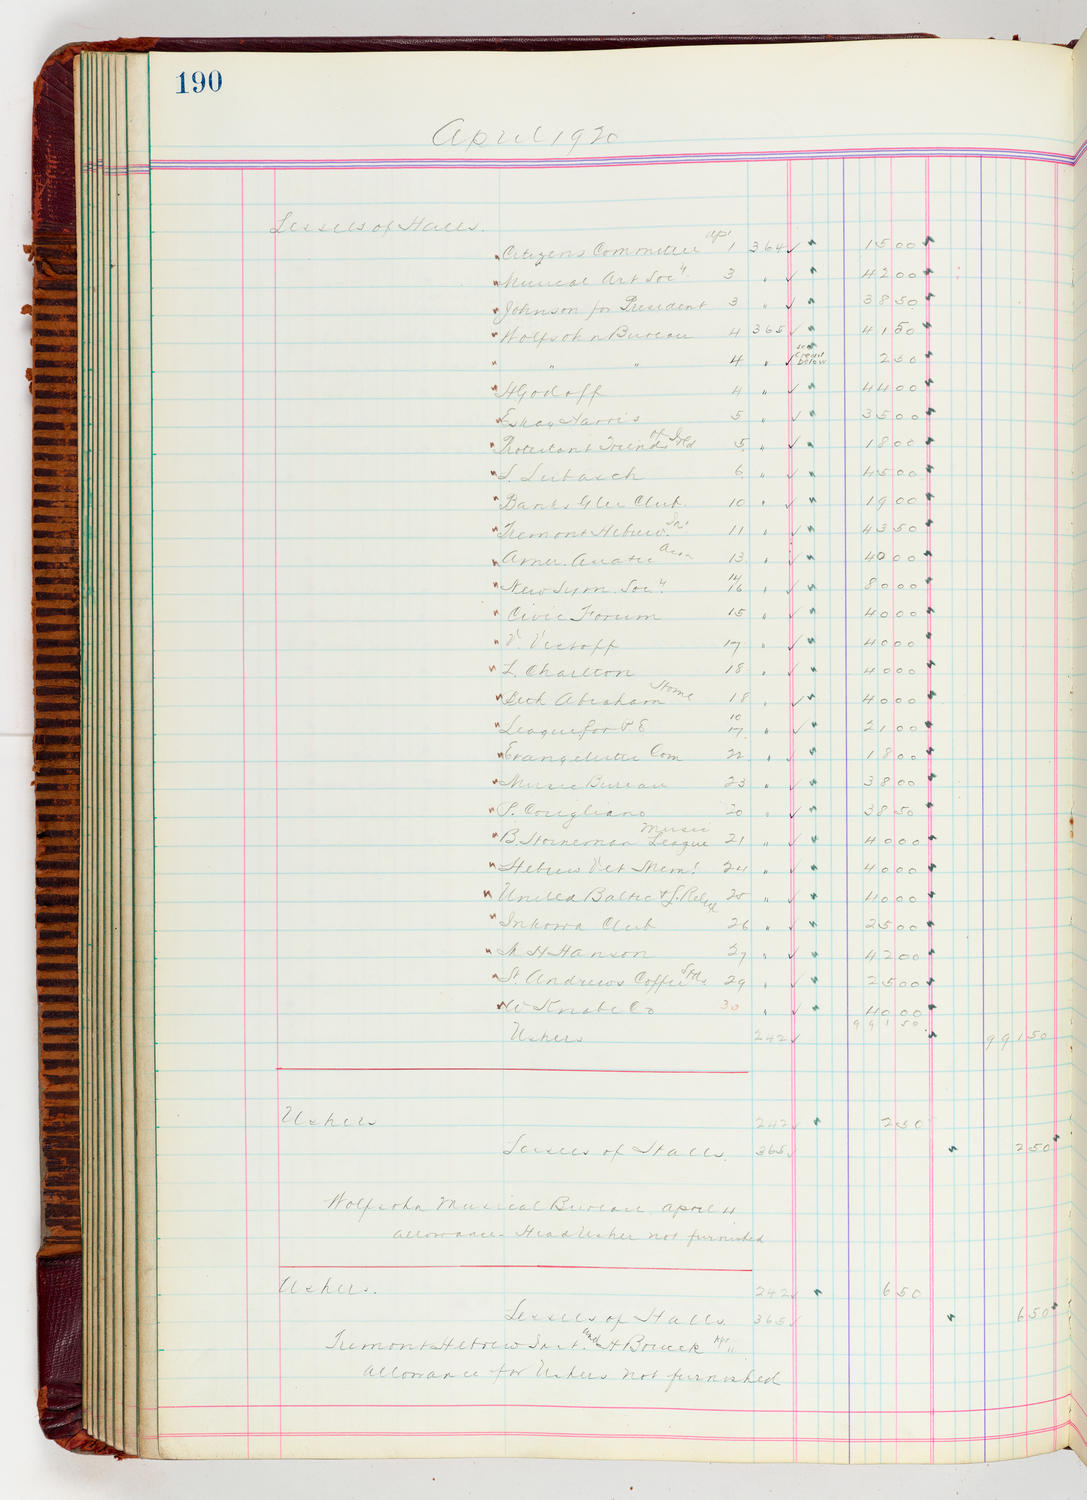 190
April 1920
Lessees of Halls.
Citizens Committee Apr 1 364 ✓ 15 00
Musical Art Soc'y 3 " ✓ 42 00
Johnson for President 3 " ✓ 38 50
Wolfsohn Bureau 4 365 ✓ 41 50
" " 4 " ✓ see credit below 2 50
H Godoff 4 " ✓ 44 00
Eskay Harris 5 " ✓ 35 00
Protestant Friends of Irld 5 " ✓ 18 00
S. Lubasch 6 " ✓ 45 00
Banks Glee Club 10 " ✓ 19 00
Tremont Hebrew Ins 11 " ✓ 43 50
Amer. Asiatic Assn 13 " ✓ 40 00
New Sym. Soc'y 14 16 " ✓ 80 00
Civic Forum 15 " ✓ 40 00
V. 17 " ✓ 40 00
L. Charlton 18 " ✓ 40 00
Beth Abraham Home 18 " ✓ 40 00
League for P E 10 17 " ✓ 21 00
Evangelistic Com 22 " ✓ 18 00
Music Bureau 23 " ✓ 38 00
S. Corigliano 20 " ✓ 38 50
B. Horneman Music League 21 " ✓ 40 00
Hebrew Vet Mem'l 24 " ✓ 40 00
United Baltic & J. Relief 25 " ✓ 40 00
Inkowa Club 26 " ✓ 25 00
H Hanson 27 " ✓ 42 00
St. Andrews Coffee Stds 29 " ✓ 25 00
W Knabe Co 30 " ✓ 40 00
991 50
Ushers 242 ✓ 991 50
Ushers 242 ✓ 2 50
Lessees of Halls. 365 ✓ 2 50
Wolfsohn Musical Bureau April 4
allowance - Head Usher not furnished
Ushers. 242 ✓ 6 50
Lessees of Halls. 365 ✓ 6 50
Tremont Hebrew Inst. and H Apr 11
allowance for Ushers not furnished